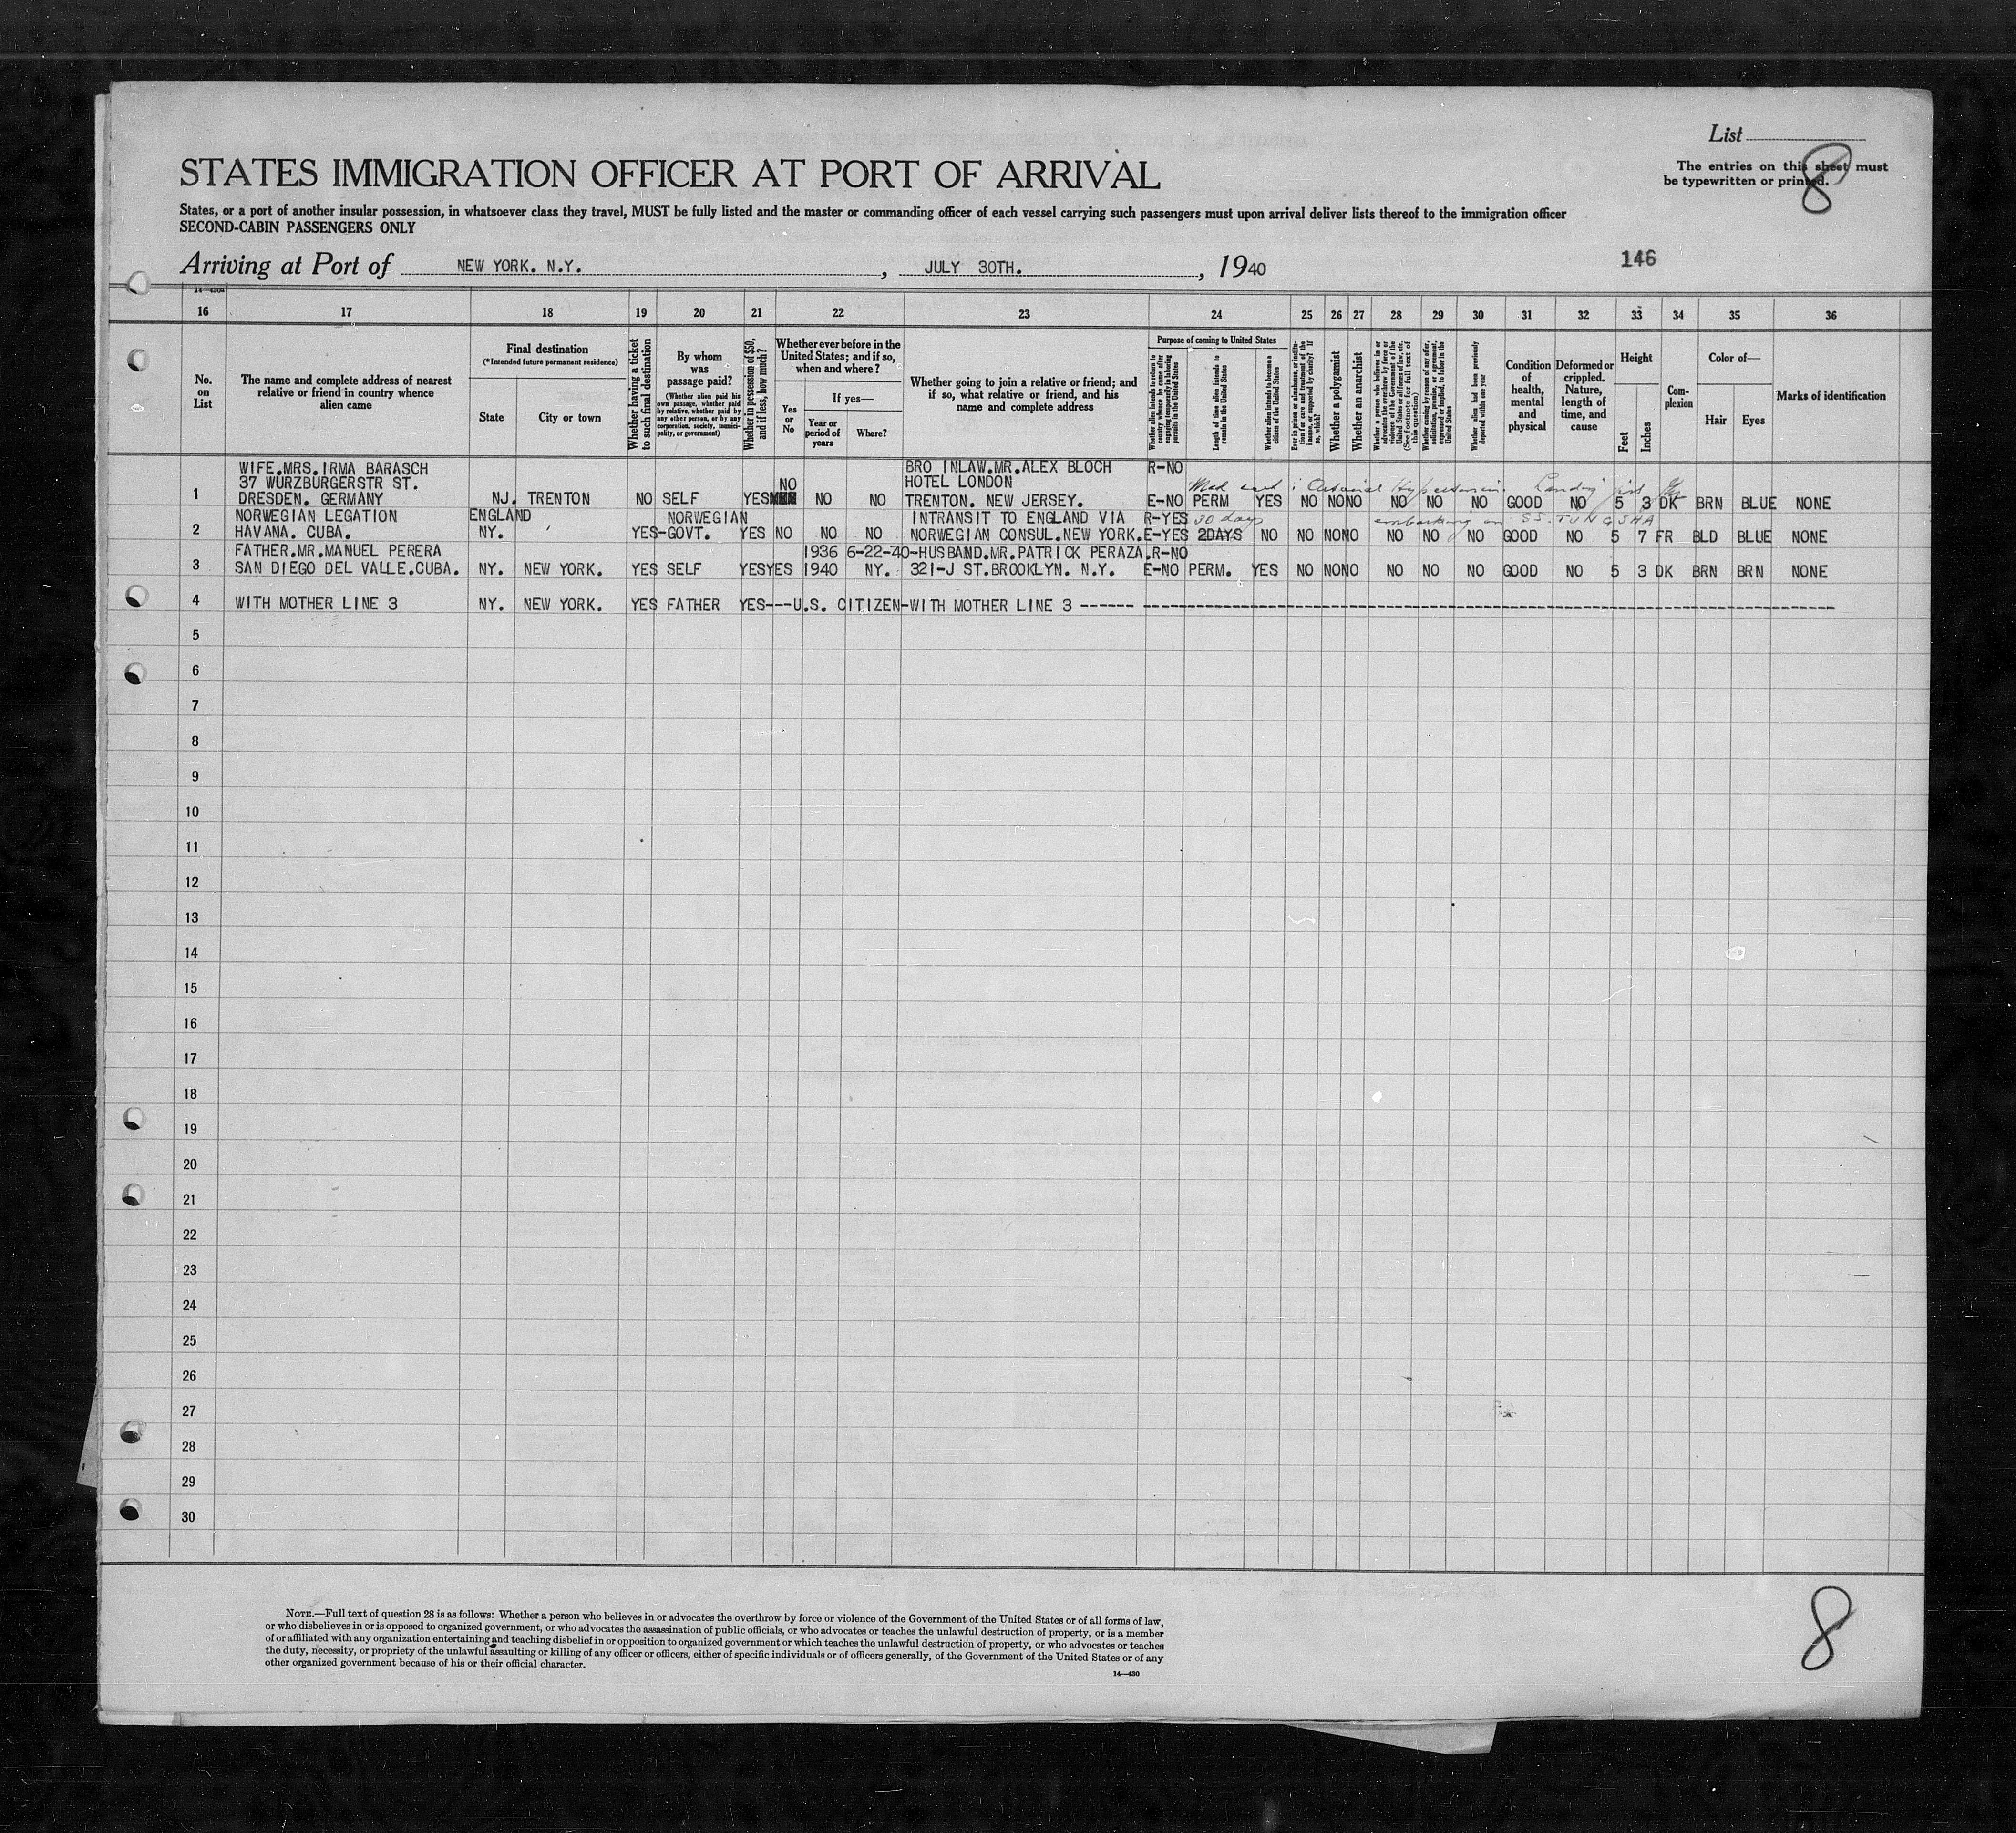 List
The entries on this sheet must
be typewritten or printed.
8
STATES IMMIGRATION OFFICER AT PORT OF ARRIVAL
States, or a port of another insular possession, in whatsoever class they travel, MUST be fully listed and the master or commanding officer of each vessel carrying such passengers must upon arrival deliver lists thereof to the immigration officer
SECOND-CABIN PASSENGERS ONLY
Arriving at Port of NEW YORK. N.Y. , JULY 30TH. , 1940
146
16 17 18 19 20 21 22 23 24 25 26 27 28 29 30 31 32 33 34 35 36
No. on List
The name and complete address of nearest relative or friend in country whence alien came
Final destination
(*Intended future permanent residence)
State
City or town
Whether having a ticket to such final destination
By whom was passage paid?
(Whether alien paid his own passage, whether paid by relative, whether paid by any other person, or by any corporation, society, municipality, or government)
Whether in possession of $50, and if less, how much?
Whether ever before in the United States; and if so, when and where?
Yes or No
If yes—
Year or period of years
Where?
Whether going to join a relative or friend; and if so, what relative or friend, and his name and complete address
Purpose of coming to United States
Whether alien intends to return to country whence he came after engaging temporarily in laboring pursuits in the United States
Length of time alien intends to remain in the United States
Whether alien intends to become a citizen of the United States
Ever in prison or almshouse, or institution for care and treatment of the insane, or supported by charity? If so, which?
Whether a polygamist
Whether an anarchist
Whether a person who believes in or advocates the overthrow by force or violence of the Government of the United States or all forms of law, etc. (See footnote for full text of this question)
Whether coming by reason of any offer, solicitation, promise, or agreement, expressed or implied, to labor in the United States
Whether alien had been previously deported within one year
Condition of health, mental and physical
Deformed or crippled. Nature, length of time, and cause
Height
Feet
Inches
Complexion
Color of—
Hair
Eyes
Marks of identification
WIFE.MRS.IRMA BARASCH BRO INLAW.MR.ALEX BLOCH R-NO
37 WURZBURGERSTR ST. NO HOTEL LONDON Med cert : Hypertension Landing
1 DRESDEN. GERMANY NJ. TRENTON NO SELF YES NO NO TRENTON. NEW JERSEY. E-NO PERM YES NO NO NO NO NO NO GOOD NO 5 3 DK BRN BLUE NONE
NORWEGIAN LEGATION ENGLAND NORWEGIAN INTRANSIT TO ENGLAND VIA R-YES 30 days embarking on SS. TUNGSHA
2 HAVANA. CUBA. NY. YES-GOVT. YES NO NO NO NORWEGIAN CONSUL.NEW YORK. E-YES 2DAYS NO NO NO NO NO NO NO GOOD NO 5 7 FR BLD BLUE NONE
FATHER.MR.MANUEL PERERA 1936 6-22-40-HUSBAND.MR.PATRICK PERAZA.R-NO
3 SAN DIEGO DEL VALLE.CUBA. NY. NEW YORK. YES SELF YES YES 1940 NY. 321-J ST.BROOKLYN. N.Y. E-NO PERM. YES NO NO NO NO NO NO GOOD NO 5 3 DK BRN BRN NONE
4 WITH MOTHER LINE 3 NY. NEW YORK. YES FATHER YES---U.S. CITIZEN-WITH MOTHER LINE 3 ------
5
6
7
8
9
10
11
12
13
14
15
16
17
18
19
20
21
22
23
24
25
26
27
28
29
30
NOTE.—Full text of question 28 is as follows: Whether a person who believes in or advocates the overthrow by force or violence of the Government of the United States or of all forms of law,
or who disbelieves in or is opposed to organized government, or who advocates the assassination of public officials, or who advocates or teaches the unlawful destruction of property, or is a member
of or affiliated with any organization entertaining and teaching disbelief in or opposition to organized government or which teaches the unlawful destruction of property, or who advocates or teaches
the duty, necessity, or propriety of the unlawful assaulting or killing of any officer or officers, either of specific individuals or of officers generally, of the Government of the United States or of any
other organized government because of his or their official character.
14—430
8